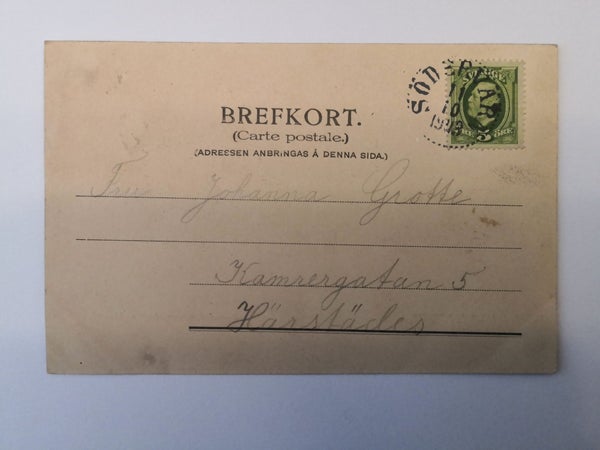 BREFKORT.
(Carte postale.)
(ADRESSEN ANBRINGAS Å DENNA SIDA.)
SÖDERTÄR
11
10
5
ÖRE
Fru Johanna Grotte
Kamrergatan 5
Härstädes